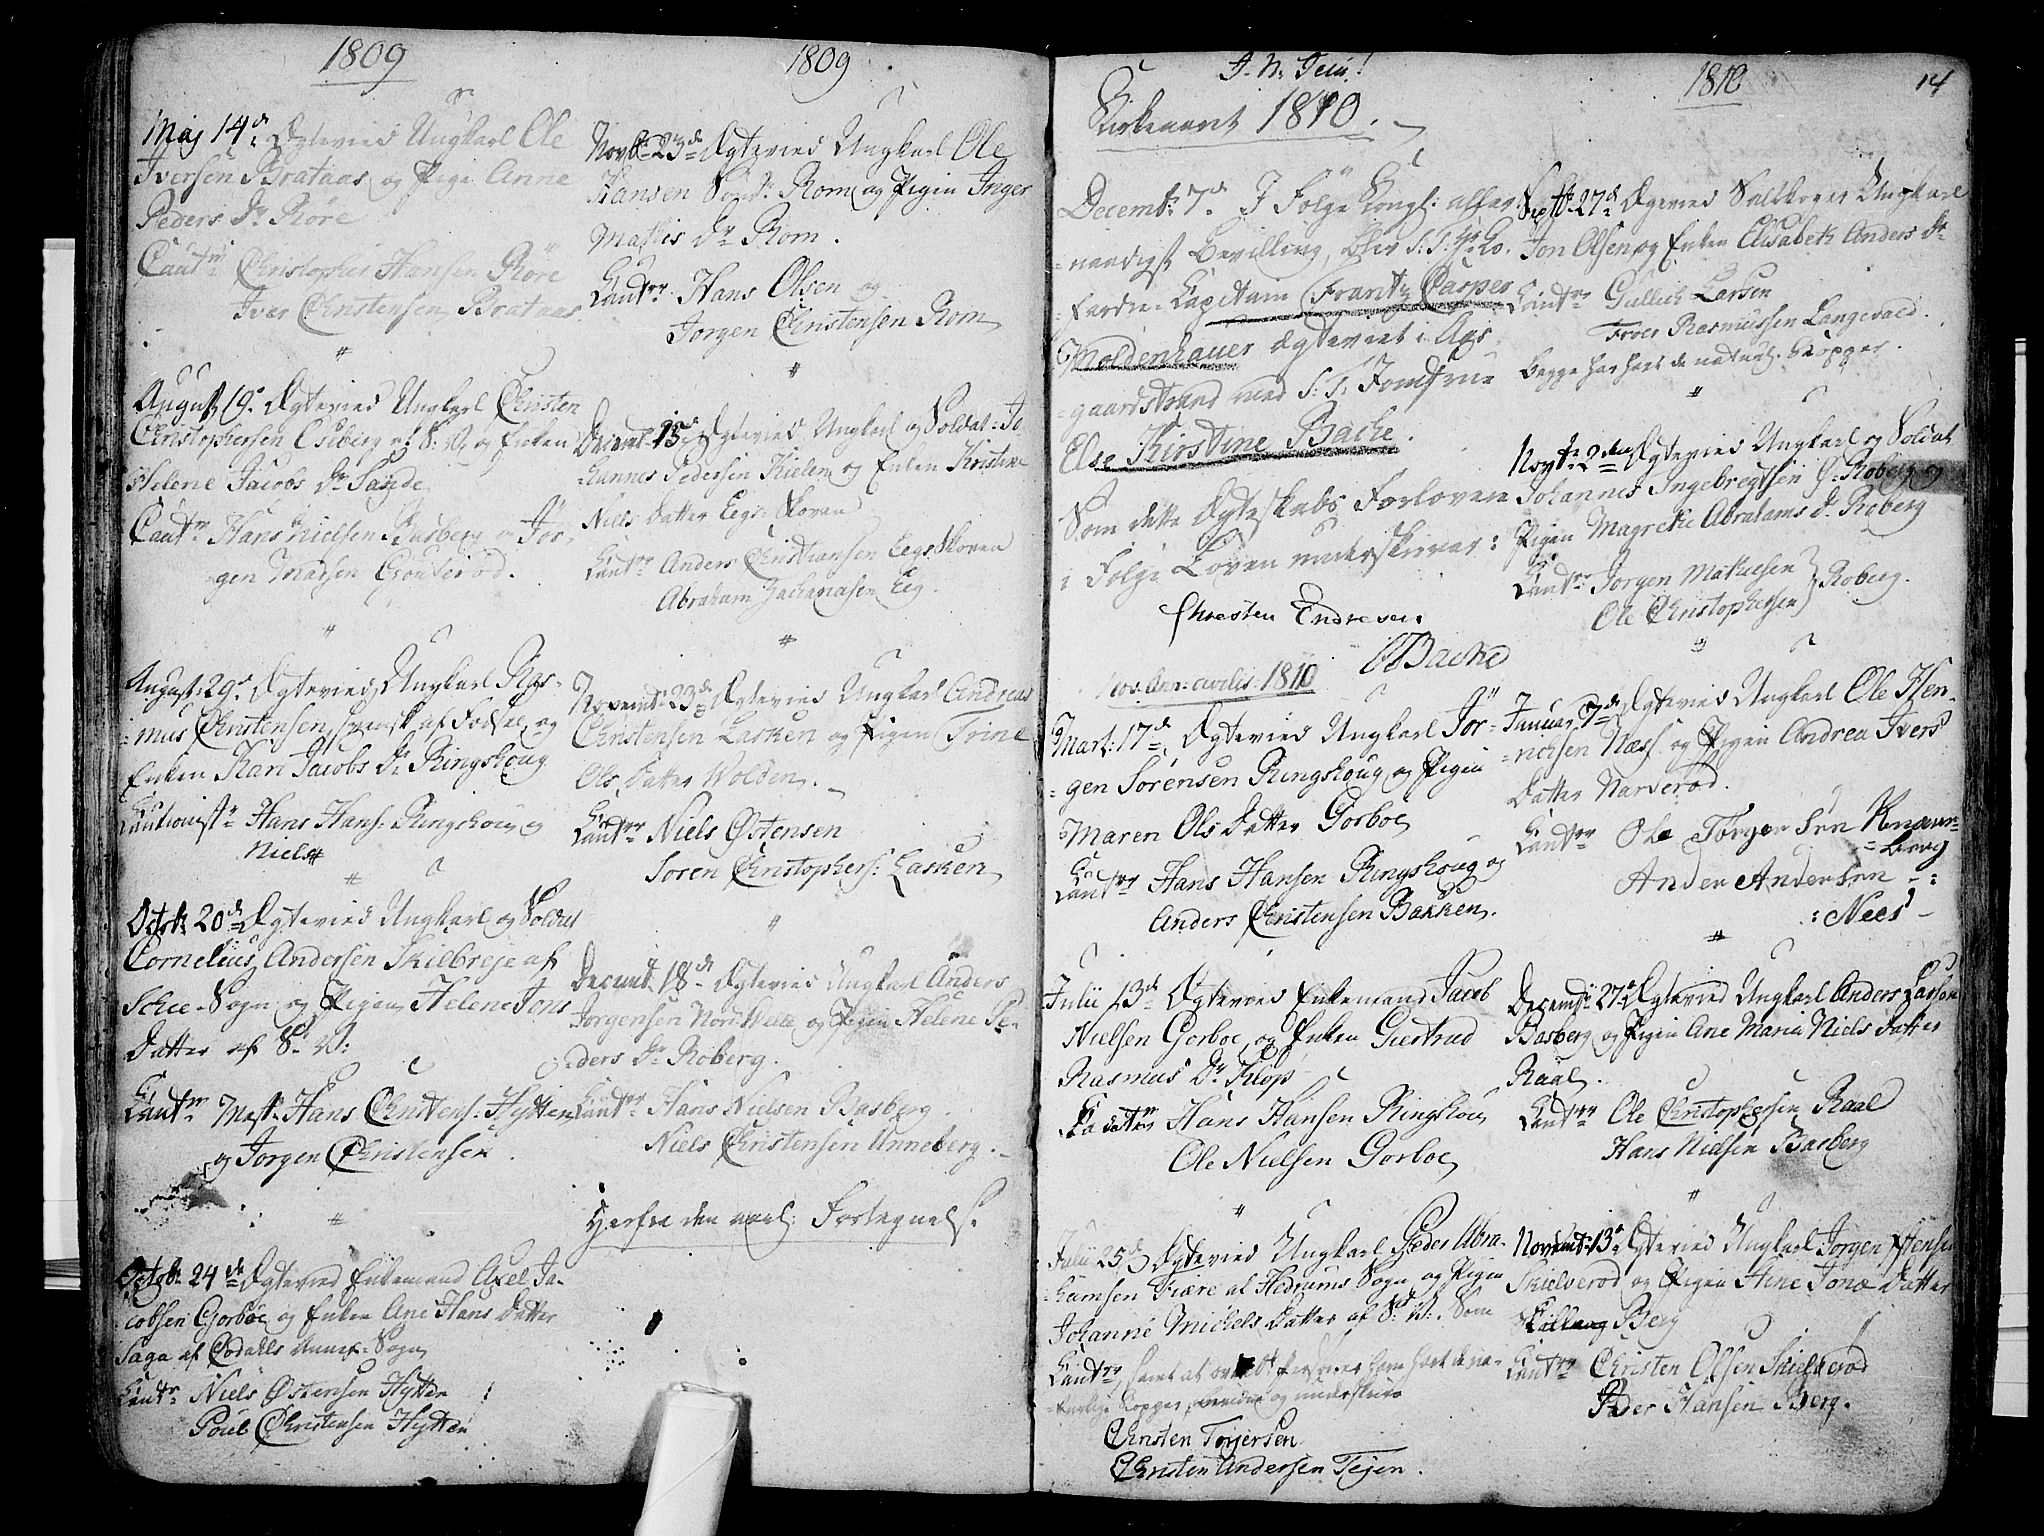 1809
Maj 14d Ægtevied Ungkarl Ole
Iversen Brataas og Pige Anne
Peders Dr Röre
Cautrr Christopher Hansen Röre
Iver Christensen Brataas
#
August 19d Ægtevied Ungkarl Christen
Christophersen Eseberg af S: V: og Enken
Helene Jacobs Dr Sande
Cautrr Hans Nielsen Basberg og Jör-
gen Madsen Gouterød.
"
August: 29d Ægtevied Ungkarl Ras-
=mus Christensen, Svensk af Fødsel, og
Enken Kari Jacobs Dr Ringshoug
Cautionistr Hans Hans: Ringshoug og
Niels #
#
Octbr 20d Ægtevied Ungkarl og Soldat
Cornelius Andersen Skilbreje af
Schee-Sogn og Pigen Helene Jons
Datter af S: V:
Cautrr Mest: Hans Christens: Hytten
og Jorgen Christensen.
#
Octob: 24de Ægtevied Enkemand Axel Ja-
cobsen Gorboe og Enken Ane Hans Datter
Saga af Bodahls Annex-Sogn
Cautr Niels Østensen Hytten
Poul Christensen Hytten
1809
Novb: 23d Ægtevied Ungkarl Ole
Hansen Sønd: Rom og Pigen Inger
Mathis Dr Rom.
Cautrr Hans Olsen og
Jorgen Christensen Rom
#
Decemb: 15d Ægtevied Ungkarl og Soldat: Jo-
=hannes Pedersen Kielem og Enken Kristine
Niels Datter Eegs-Skoven
Cautrr Anders Christiansen Eegs Skoven
Abraham Zachariasen Eeg.
#
Novemb: 23d Ægtevied Ungkarl Andreas
Christensen Lasken og Pigen Trine
Ols Datter Wolden.
Cautrr Niels Østensen
Soren Christophers: Lasken
"
Decemb: 18d Ægtevied Ungkarl Anders
Jorgensen Nord Welte og Pigen Helene Pe-
ders Dr Roberg.
Cautrr Hans Nielsen Basberg.
Niels Christensen Unneberg.
Herfra den aarl: Fortegnelse
J. N. Jesu!
Kirkeaaret 1810.
Decemb: 7d I Følge Kongl: aller-
=naadigst Bevilling, blev S: T: Hr Co-
=fardie-Capitain Frantz Casper
Moldenhauer Ægteviet i Aas-
=gaardstrand med S: T: Jomfrue
Else Kirstine Bache.
Som dette Ægteskabs Forlovere
i Følge Loven underskriver:
Chresten Endresen
Bache
Nov: Ann: civilis: 1810
Mart: 17d Ægteviet Ungkarl Jör-
=gen Sörensen Ringshoug og Pigen
Maren Ols Datter Gorboe
Cautrr Hans Hansen Ringshoug og
Anders Christensen Bakken.
Julii 13d Ægteviet Enkemand Jacob
Nielsen Gorboe, og Enken Giertrud
Rasmus Dr Klop
Cautrr Hans Hansen Ringshou
Ole Nielsen Gorboe
"
Julii 25d Ægteviet Ungkarl Peder Abra-
=hamsen Fiære af Hedrums Sogn og Pigen
Johanne Michels Datter af S: V: Som
Cautrr samt at Personer have havt de na-
=turlige Kopper, og underskrive
Christen Torjersen
Christen Andersen Tejen.
1810
14
Septb: 27d Ægteviet Ungkarl
Jon Olsen og Enken Elisabeth Anders Dr
Cautrr Gullich Larsen
Iver Rasmussen Langevald.
Begge har havt de naturl: Kopper.
"
Novb: 2den Ægteviet Ungkarl og Soldat
Johannes Ingebregtsen G: Roberg og
Pigen Magrethe Abrahams Dr Roberg
Cautrr Jorgen Mathiesen } Roberg.
Ole Christophersen
"
Januar 7d Ægteviet Ungkarl Ole Hen-
=richsen Næss og Pigen Andrea Ivers
Datter Narverød.
Cautrr Ole Törger Sen Knaur-
=berg
Ander Andersen
: Nees
#
Decemb: 27d Ægteviet Ungkarl Anders Larsen
Basberg og Pigen Ane Maria Niels Datter
Raal.
Cautrr Ole Christophersen Raal
Hans Nielsen Basberg
"
Novemb: 13d Ægteviet Ungkarl Jorgen Xstensen
Skielverod og Pigen Stine Jons Datter
Berg
Cautrr Christen Olsen Skielverod
Peder Hansen Berg.